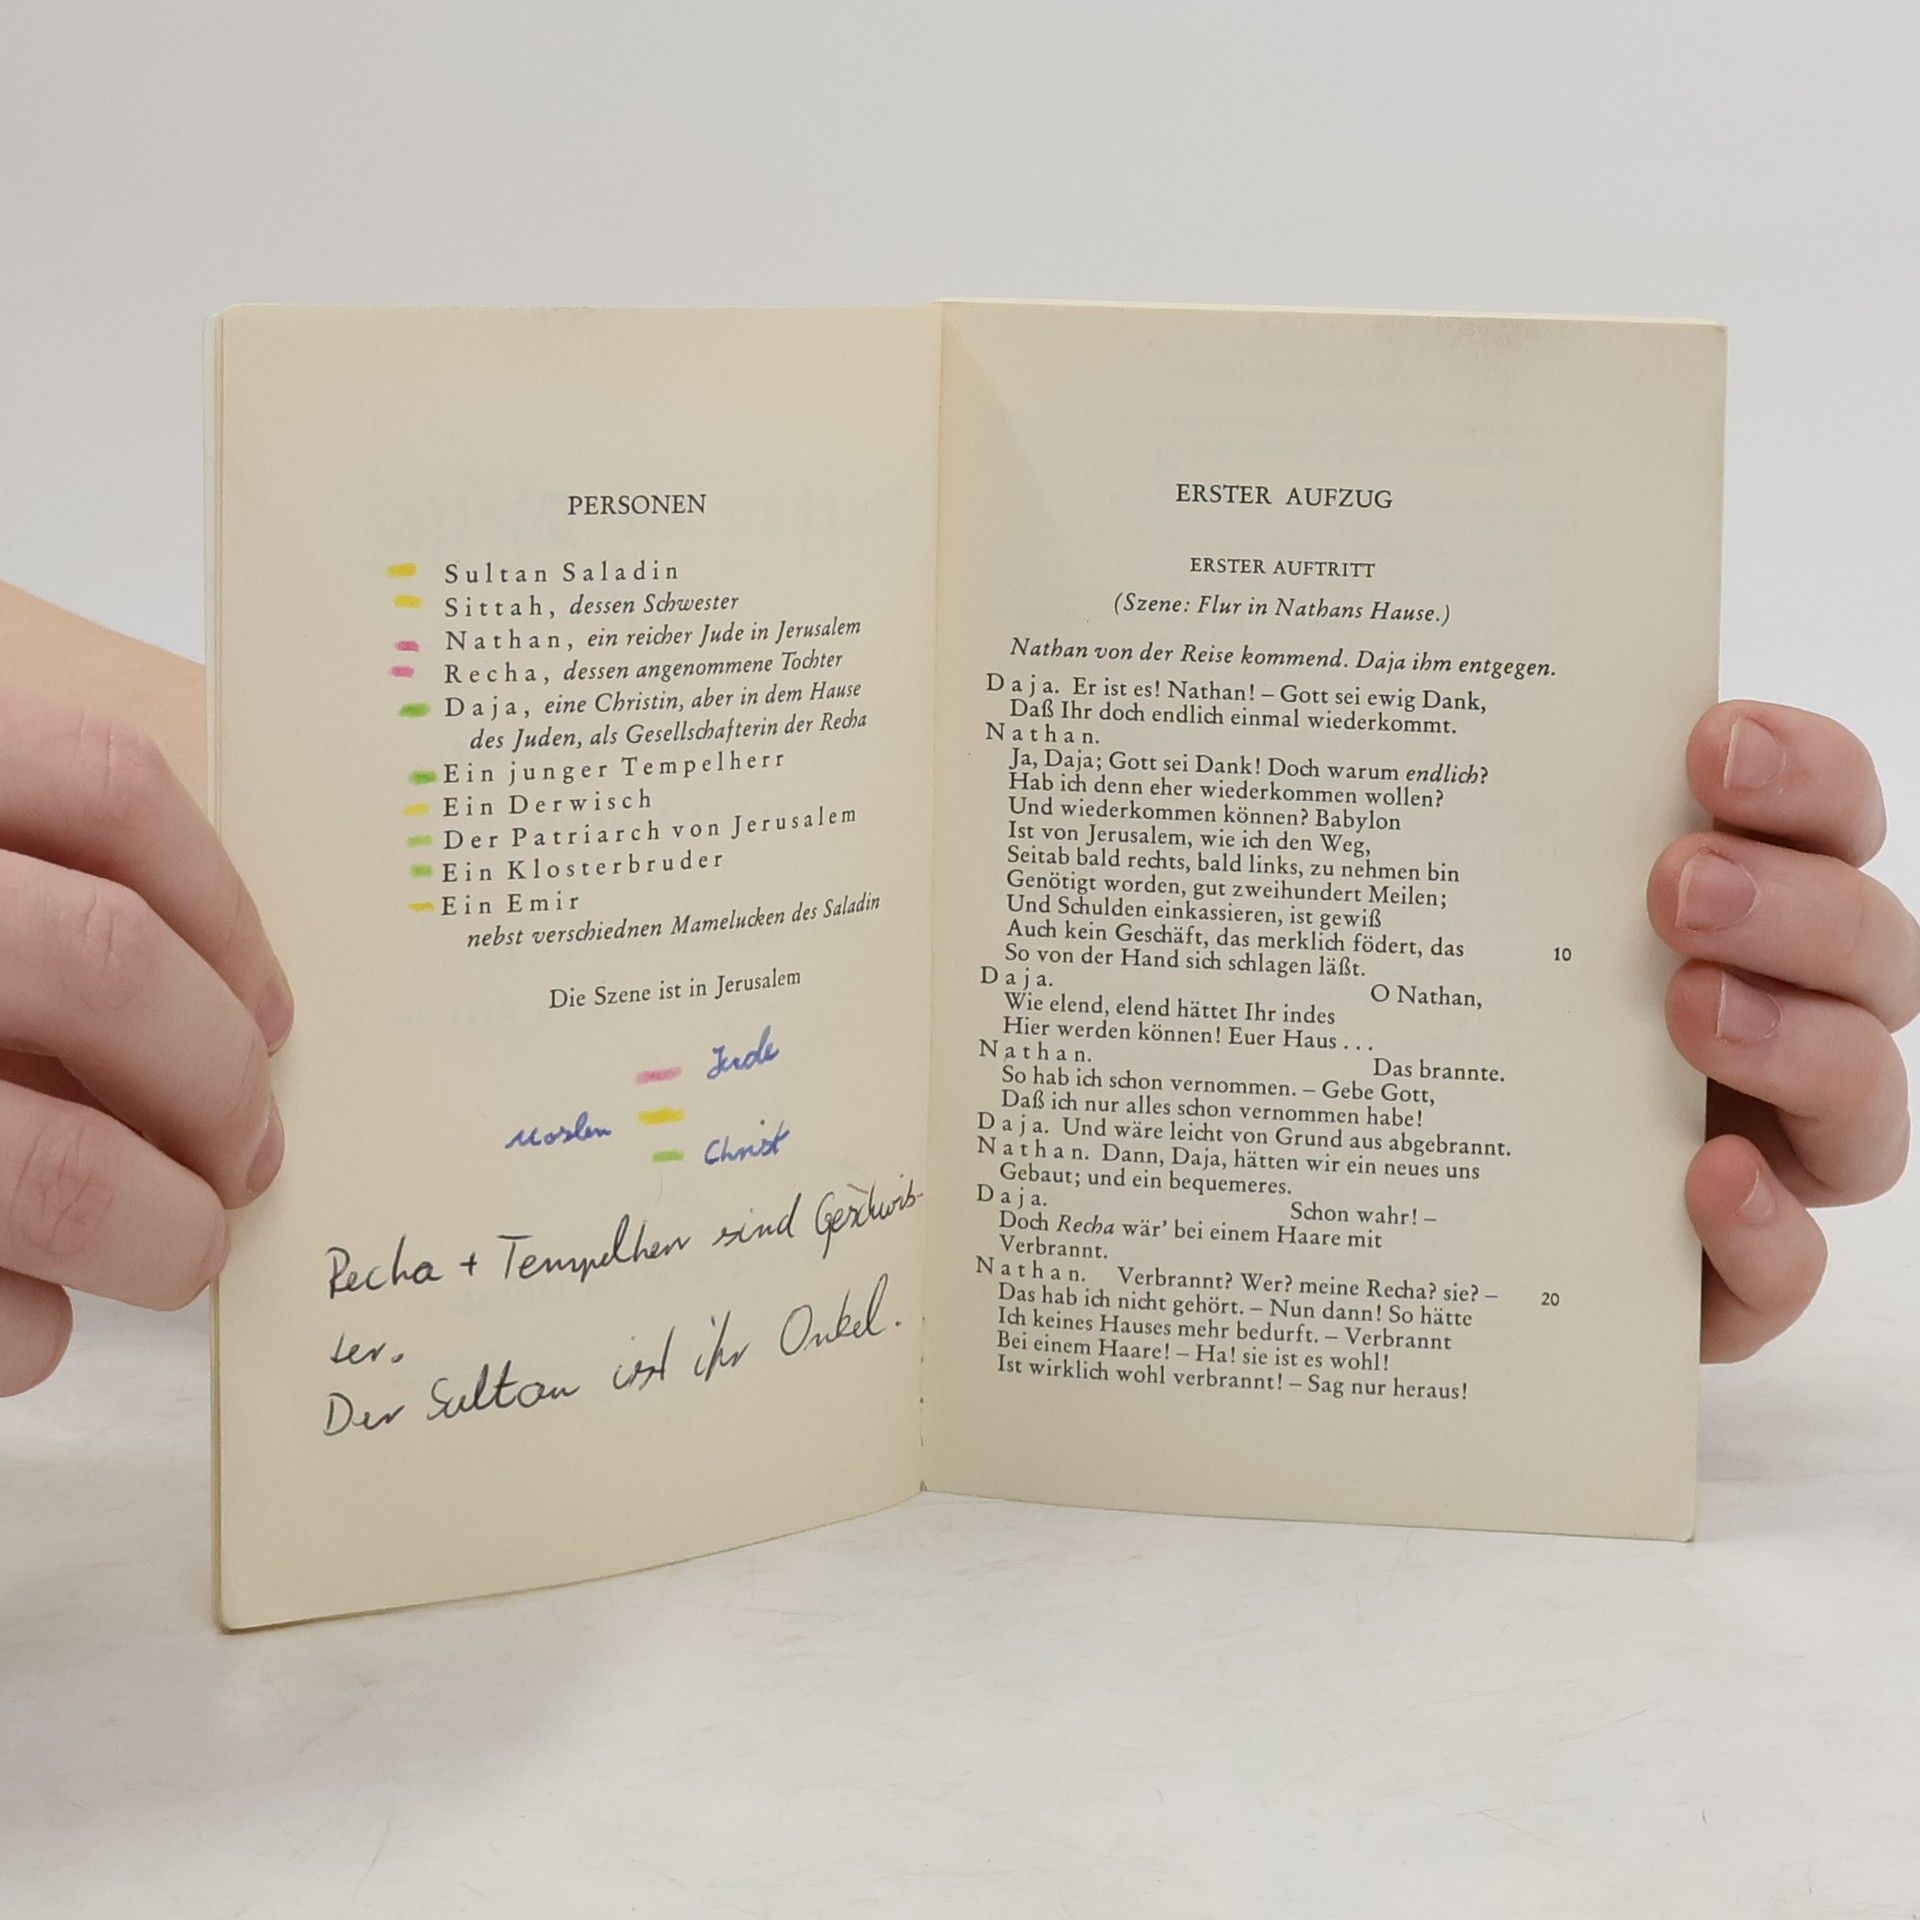 PERSONEN
Sultan Saladin
Sittah, dessen Schwester
Nathan, ein reicher Jude in Jerusalem
Recha, dessen angenommene Tochter
Daja, eine Christin, aber in dem Hause
des Juden, als Gesellschafterin der Recha
Ein junger Tempelherr
Ein Derwisch
Der Patriarch von Jerusalem
Ein Klosterbruder
Ein Emir
nebst verschiednen Mamelucken des Saladin
Die Szene ist in Jerusalem
Jude
Moslem
Christ
Recha + Tempelherr sind Geschwis-
ter.
Der Sultan ist ihr Onkel.
ERSTER AUFZUG
ERSTER AUFTRITT
(Szene: Flur in Nathans Hause.)
Nathan von der Reise kommend. Daja ihm entgegen.
Daja. Er ist es! Nathan! – Gott sei ewig Dank,
Daß Ihr doch endlich einmal wiederkommt.
Nathan.
Ja, Daja; Gott sei Dank! Doch warum endlich?
Hab ich denn eher wiederkommen wollen?
Und wiederkommen können? Babylon
Ist von Jerusalem, wie ich den Weg,
Seitab bald rechts, bald links, zu nehmen bin
Genötigt worden, gut zweihundert Meilen;
Und Schulden einkassieren, ist gewiß
Auch kein Geschäft, das merklich födert, das 10
So von der Hand sich schlagen läßt.
Daja. O Nathan,
Wie elend, elend hättet Ihr indes
Hier werden können! Euer Haus . . .
Nathan. Das brannte.
So hab ich schon vernommen. – Gebe Gott,
Daß ich nur alles schon vernommen habe!
Daja. Und wäre leicht von Grund aus abgebrannt.
Nathan. Dann, Daja, hätten wir ein neues uns
Gebaut; und ein bequemeres.
Daja. Schon wahr! –
Doch Recha wär' bei einem Haare mit
Verbrannt.
Nathan. Verbrannt? Wer? meine Recha? sie? – 20
Das hab ich nicht gehört. – Nun dann! So hätte
Ich keines Hauses mehr bedurft. – Verbrannt
Bei einem Haare! – Ha! sie ist es wohl!
Ist wirklich wohl verbrannt! – Sag nur heraus!